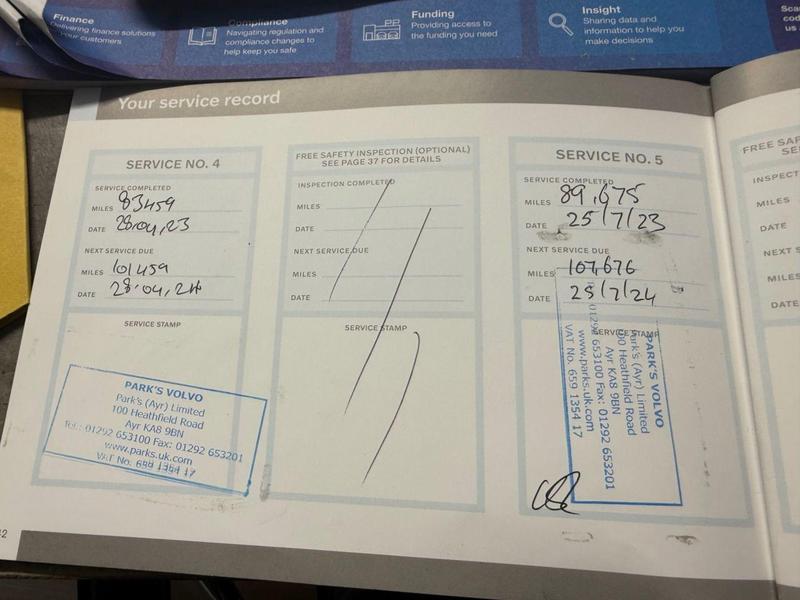 Finance
Delivering finance solutions
your customers
Compliance
Navigating regulation and
compliance changes to
help keep you safe
Funding
Providing access to
the funding you need
Insight
Sharing data and
information to help you
make decisions
Your service record
SERVICE NO. 4
SERVICE COMPLETED
MILES 83459
DATE 28.04.23
NEXT SERVICE DUE
MILES 101459
DATE 28.04.24
SERVICE STAMP
PARK'S VOLVO
Park's (Ayr) Limited
100 Heathfield Road
Ayr KA8 9BN
Tel.: 01292 653100 Fax: 01292 653201
www.parks.uk.com
VAT No. 659 1354 17
FREE SAFETY INSPECTION (OPTIONAL)
SEE PAGE 37 FOR DETAILS
INSPECTION COMPLETED
MILES
DATE
NEXT SERVICE DUE
MILES
DATE
SERVICE STAMP
SERVICE NO. 5
SERVICE COMPLETED
MILES 89,675
DATE 25/7/23
NEXT SERVICE DUE
MILES 107,676
DATE 25/7/24
SERVICE STAMP
PARK'S VOLVO
Park's (Ayr) Limited
00 Heathfield Road
Ayr KA8 9BN
01292 653100 Fax: 01292 653201
www.parks.uk.com
VAT No. 659 1354 17
FREE SAF
SE
INSPECT
MILES
DATE
NEXT S
MILES
DATE